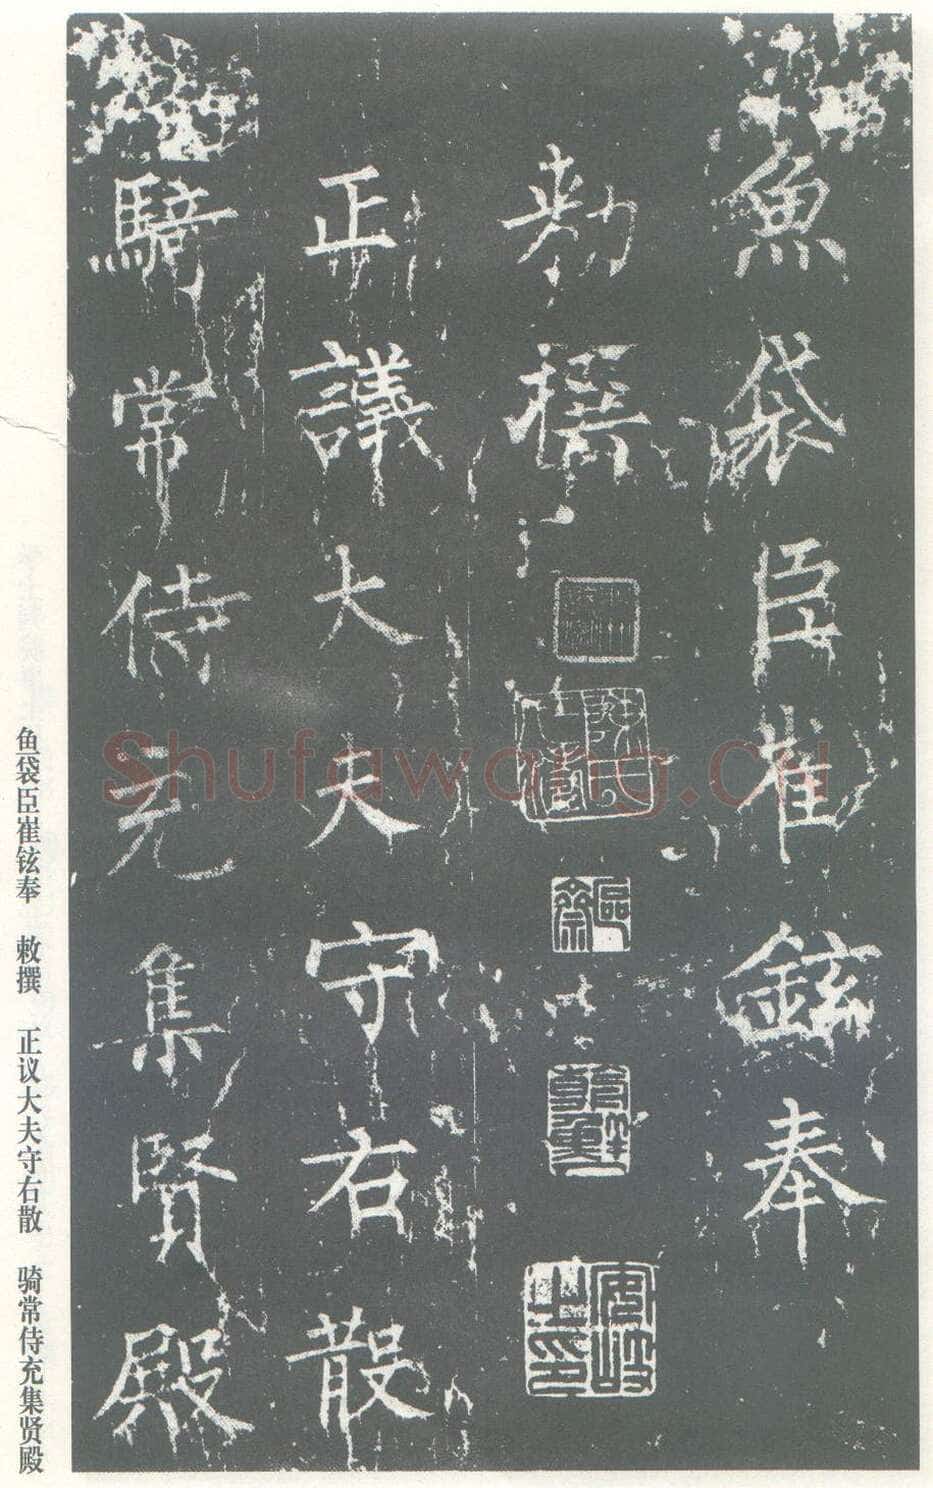 魚袋臣崔鉉奉
勑撰
正議大夫守右散
騎常侍充集賢殿
鱼袋臣崔铉奉 敕撰 正议大夫守右散 骑常侍充集贤殿
Shufawang.cn